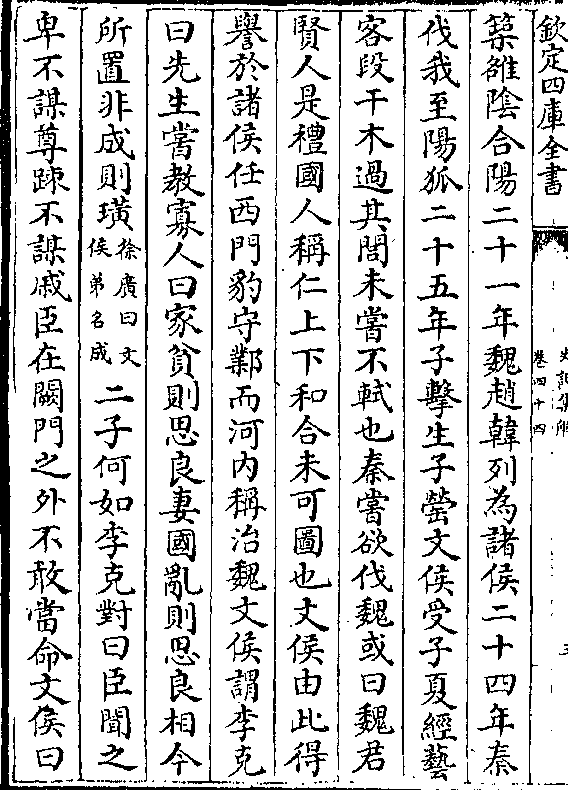 欽定四庫全書
史記集解
卷四十四
築雒陰合陽二十一年魏趙韓列為諸侯二十四年秦
伐我至陽狐二十五年子擊生子罃文侯受子夏經藝
客段干木過其閭未嘗不軾也秦嘗欲伐魏或曰魏君
賢人是禮國人稱仁上下和合未可圖也文侯由此得
譽於諸侯任西門豹守鄴而河内稱治魏文侯謂李克
曰先生嘗教寡人曰家貧則思良妻國亂則思良相今
所置非成則璜徐廣曰文侯弟名成二子何如李克對曰臣聞之
卑不謀尊踈不謀戚臣在闕門之外不敢當命文侯曰